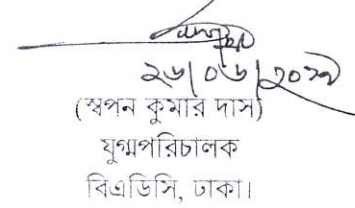 ২৬/০৬/২০১৯
(স্বপন কুমার দাস)
যুগ্মপরিচালক
বিএডিসি, ঢাকা।